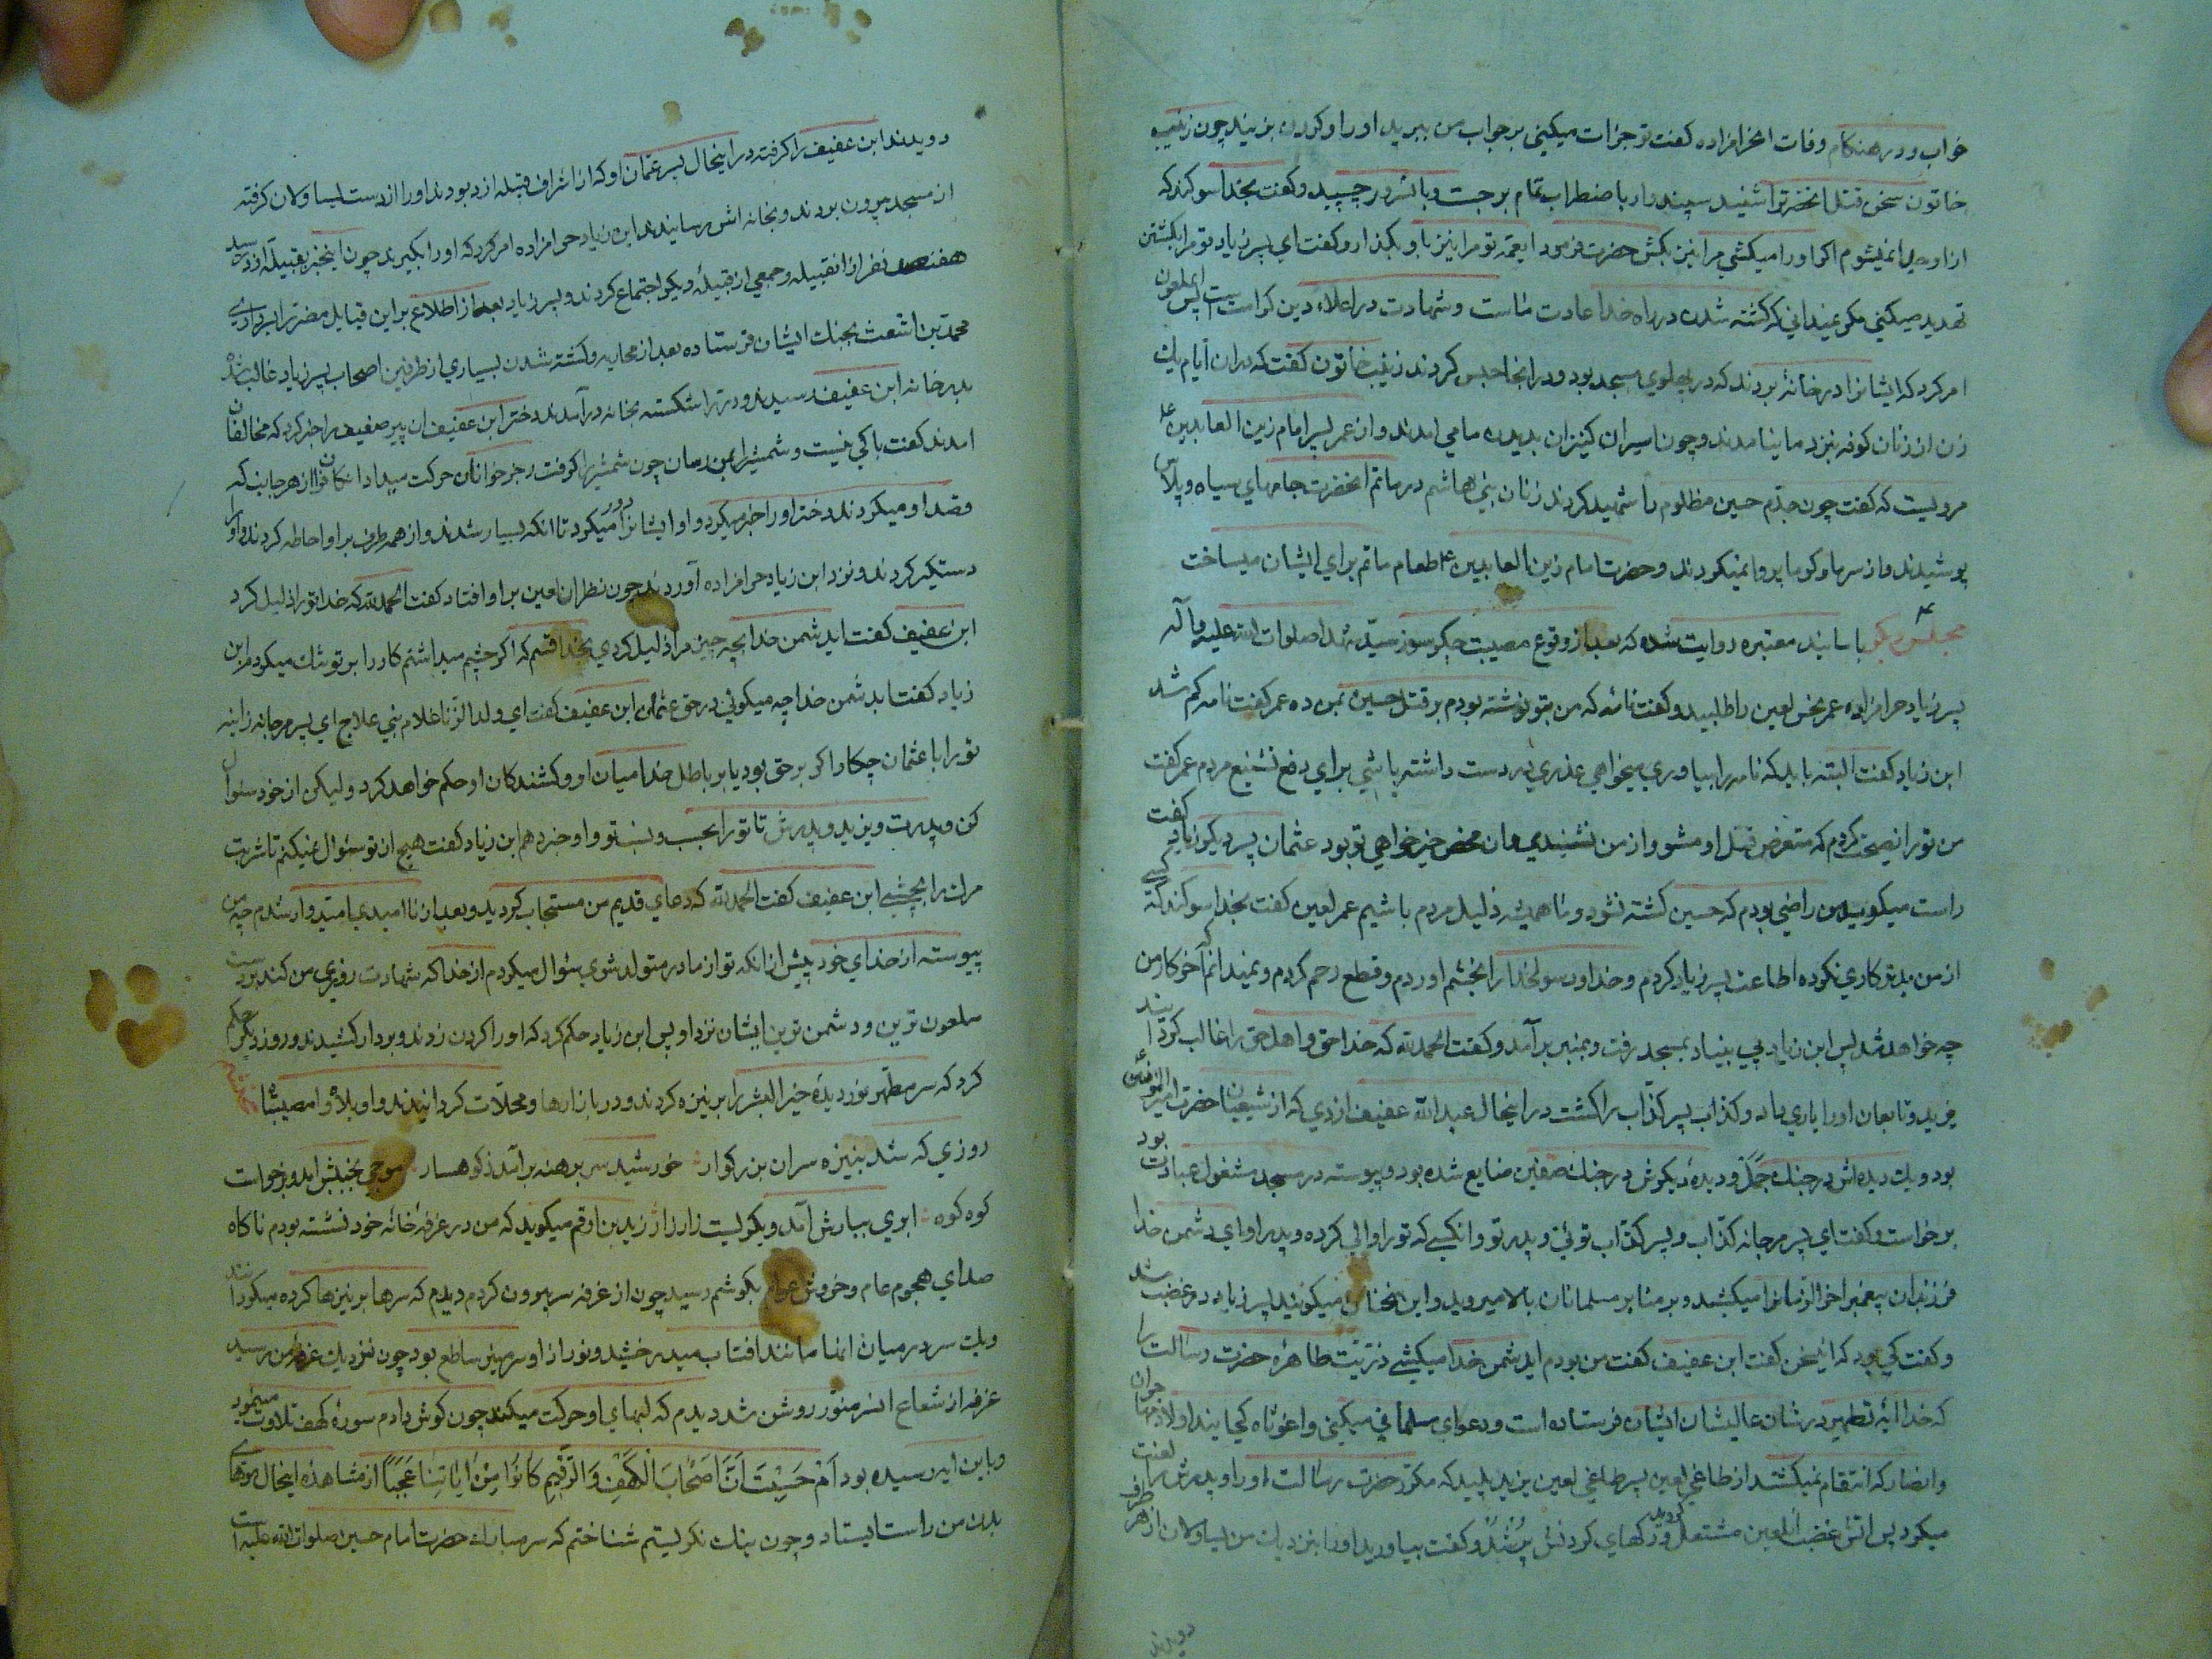 خواب و در هنکام وفات انحرامزاده کفت تو جرات میکنی بر جواب من ببرید او را و کردن بزنید چون زینب
خاتون سخن قتل انحضرترا شنید سپندوار باضطراب تمام برجست و با و در چسپید و کفت بخدا سوکند که
از او جدا نمیشوم اکر او را میکشی مرا نیز بکش حضرت فرمود ایعمه تو مرا نیز باو بکذار و کفت ای پسر زیاد تو مرا بکشتن
تهدید میکنی مکر نمیدانی که کشته شدن در راه خدا عادت ماست و شهادت در اعلاء دین کرامت پس الملعون
امر کرد که ایشانرا در خانهٔ بردند که در پهلوی مسجد بود و در انجا حبس کردند زینب خاتون کفت که در ان ایام یک
زن از زنان کوفه بنزد ما نیامدند و چون اسیران کنیزان بدیدن ما می امدند و از عمر پسر امام زین العابدین ع
مرویست که کفت چون جدم حسین مظلوم را شهید کردند زنان بنی هاشم در ماتم انحضرت جامهای سیاه و پلاس
پوشیدند و از سرما و کرما پروا نمیکردند و حضرت امام زین العابدین ع طعام ماتم برای ایشان میساخت
مجلس دیکر باسانید معتبره روایت شده که بعد از وقوع مصیبت جکرسوز سید شهدا صلوات الله علیه و آله
پسر زیاد حرامزاده عمر نحس لعین را طلبید و کفت نامه که من بتو نوشته بودم بر قتل حسین بمن ده عمر کفت نامه کم شد
ابن زیاد کفت البته باید که نامه را بیاوری میخواهی عذری در دست داشته باشی برای دفع تشنیع مردم عمر کفت
من تو را نصیحت کردم که متعرض قتل او مشو و از من نشنیدی و ان محض خیرخواهی تو بود عثمان پسر دیکر زیاد کفت
راست میکوید من راضی بودم که حسین کشته نشود و ما همیشه ذلیل مردم باشیم عمر لعین کفت بخدا سوکند که کسی
از من بدتر کاری نکرده اطاعت پسر زیاد کردم و خدا و رسولخدا را بخشم اوردم و قطع رحم کردم و نمیدانم آخر کار من
چه خواهد شد پس ابن زیاد بی بنیاد بمسجد رفت و بمنبر برآمد و کفت الحمدلله که خدا حق و اهل حق را غالب کردانید
یزید و تابعان او را یاری داد و کذاب پسر کذاب را کشت در اینحال عبدالله عفیف ازدی که از شیعیان حضرت امیرالمؤمنین
بود و یک دیده اش در جنک جمل و دیدهٔ دیکرش در جنک صفین ضایع شده بود و پیوسته در مسجد مشغول عبادت بود
برخواست و کفت ای پسر مرجانه کذاب و پسر کذاب توئی و پدر تو و انکسی که تو را والی کرده و پدر او ای دشمن خدا
فرزندان پیغمبر اخرالزمانرا میکشید و بر منابر مسلمانان بالا میروید و این سخنان میکوئید پسر زیاد در غضب شد
و کفت کی بود که این سخن کفت ابن عفیف کفت من بودم ایدشمن خدا میکشی ذریت طاهرهٔ حضرت رسالت را
که خدا ایهٔ تطهیر در شان عالیشان ایشان فرستاده است و دعوای مسلمانی میکنی واغوثاه کجایند اولاد مهاجران
و انصار که انتقام نمیکشند از طاغی لعین پسر طاغی لعین یزید پلید که مکرر حضرت رسالت او را و پدرش را لعنت
میکرد پس اتش غضب ان لعین مشتعل کردید و رکهای کردنش پر شد و کفت بیاورید او را بنزدیک من یساولان از هر طرف
دویدند
دویدند ابن عفیف را کرفتند در اینحال پسر عمان او که از اشراف قبیله ازد بودند او را از دست یساولان کرفته
از مسجد بیرون بردند و بخانه اش رسانیدند ابن زیاد حرامزاده امر کرد که او را بکیرند چون اینخبر بقبیله ازد رسید
هفتصد نفر از انقبیله و جمعی از قبیلهٔ دیکر اجتماع کردند و پسر زیاد بعد از اطلاع بر این قبایل مضر را بسرداری
محمد بن اشعث بجنک ایشان فرستاده بعد از محاربه و کشته شدن بسیاری از طرفین اصحاب پسر زیاد غالب شده
بدر خانهٔ ابن عفیف رسیدند و در را شکسته بخانه درآمدند دختر ابن عفیف ان پیر ضعیف را خبر کرد که مخالفان
امدند کفت باکی نیست و شمشیرا بمن رسان چون شمشیر را کرفت رجز خوانان حرکت میداد انکافران از هر جانب که
قصد او میکردند دختر او را خبر میکرد و او ایشانرا دور میکرد تا انکه بسیار شدند و از همه طرف بر او احاطه کردند و او را
دستکیر کردند و نزد ابن زیاد حرامزاده آوردند چون نظر ان لعین بر او افتاد کفت الحمدلله که خدا تو را ذلیل کرد
ابن عفیف کفت ایدشمن خدا بچه چیز مرا ذلیل کردی بخدا قسم که اکر چشم میداشتم کار را بر تو تنک میکردم ابن
زیاد کفت ایدشمن خدا چه میکوئی در حق عثمان ابن عفیف کفت ای ولدالزنا غلام بنی علاج ای پسر مرجانه زانیه
تو را با عثمان چکار اکر بر حق بود یا بر باطل خدا میان او و کشندکان او حکم خواهد کرد و لیکن از خود سئوال
کن و پدرت و یزید و پدرش تا تو را بحسب و نسب تو و او خبر دهم ابن زیاد کفت هیچ از تو سئوال نمیکنم تا شربت
مرک را بچشی ابن عفیف کفت الحمدلله که دعای قدیم من مستجاب کردید و بعد از ناامیدی امیدوار شدم چه من
پیوسته از خدای خود پیش از انکه تو از مادر متولد شوی سئوال میکردم از خدا که شهادت روزی من کند بر دست
ملعون ترین و دشمن ترین ایشان نزد او پس ابن زیاد حکم کرد که او را کردن زدند و بردار کشیدند و روز دیکر حکم
کرد که سر مطهر نوردیدهٔ خیر البشر را بر نیزه کردند و در بازارها و محلات کردانیدند واویلاه وامصیبتاه
روزی که شد بنیزه سر ان بزرکوار خورشید سر برهنه برآمد ز کوهسار موجی بجنبش امد و برخواست
کوه کوه ابری ببارش آمد و بکریست زار زار زید بن ارقم میکوید که من در غرفهٔ خانهٔ خود نشسته بودم ناکاه
صدای هجوم عام و خروش عوام بکوشم رسید چون از غرفه سر بیرون کردم دیدم که سرها بر نیزها کرده میکردانند
و یک سر در میان انها مانند افتاب میدرخشید و نور از او ساطع بود چون نزدیک غرفهٔ من رسید
غرفه از شعاع انسر منور روشن شد دیدم که لبهای او حرکت میکند چون کوش دادم سورهٔ کهف تلاوت مینمود
و باین ایه رسیده بود اَمْ حَسِبْتَ اَنَّ اَصْحَابَ الْکَهْفِ وَالرَّقِیمِ کَانُوا مِنْ اٰیَاتِنَا عَجَبًا از مشاهدهٔ اینحال موهای
بدن من راست ایستاد و چون نیک نکریستم شناختم که سر مبارک حضرت امام حسین صلوات الله علیه است